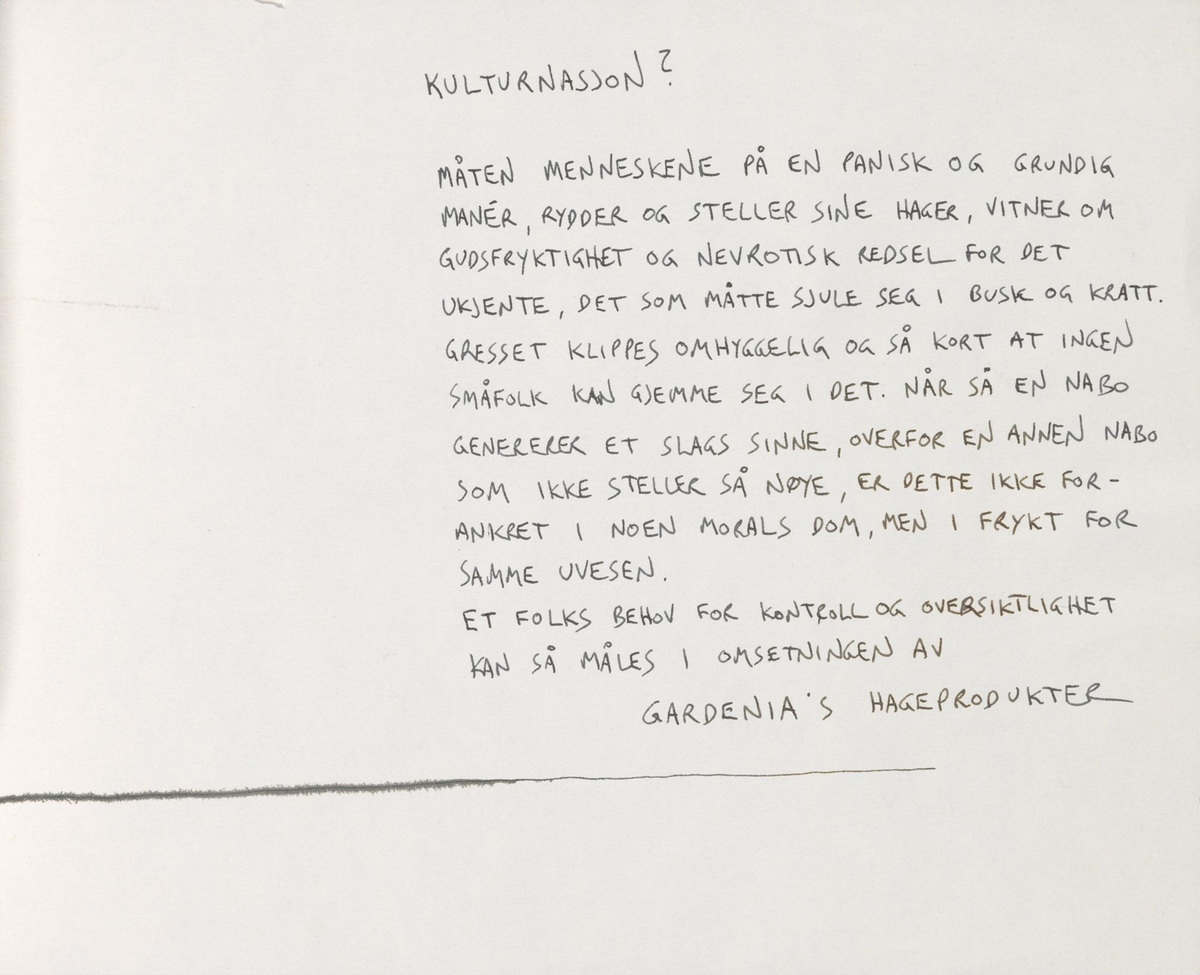 KULTURNASJON?
MÅTEN MENNESKENE PÅ EN PANISK OG GRUNDIG
MANÉR, RYDDER OG STELLER SINE HAGER, VITNER OM
GUDSFRYKTIGHET OG NEVROTISK REDSEL FOR DET
UKJENTE, DET SOM MÅTTE SJULE SEG I BUSK OG KRATT.
GRESSET KLIPPES OMHYGGELIG OG SÅ KORT AT INGEN
SMÅFOLK KAN GJEMME SEG I DET. NÅR SÅ EN NABO
GENERERER ET SLAGS SINNE, OVERFOR EN ANNEN NABO
SOM IKKE STELLER SÅ NØYE, ER DETTE IKKE FOR-
ANKRET I NOEN MORALS DOM, MEN I FRYKT FOR
SAMME UVESEN.
ET FOLKS BEHOV FOR KONTROLL OG OVERSIKTLIGHET
KAN SÅ MÅLES I OMSETNINGEN AV
GARDENIA'S HAGEPRODUKTER